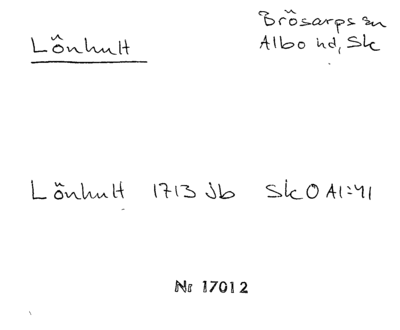 Lönhult
Brösarps sn
Albo hd, Sk
Lönhult 1713 Jb Sk O AI:41
Nr 17012